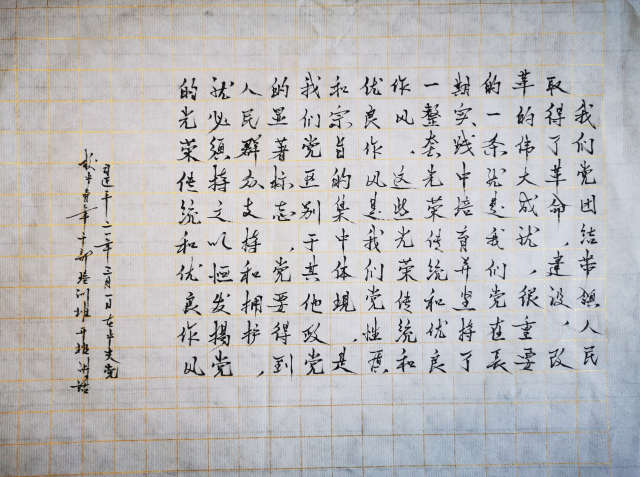 我们党团结带领人民
取得了革命、建设、改
革的伟大成就，很重要
的一条就是我们党在长
期实践中培育并坚持了
一整套光荣传统和优良
作风。这些光荣传统和
优良作风是我们党性质
和宗旨的集中体现，是
我们党区别于其他政党
的显著标志。党要得到
人民群众支持和拥护，
就必须持之以恒发扬党
的光荣传统和优良作风
年三月一日在中央党
校中青年干部培训班开班讲话